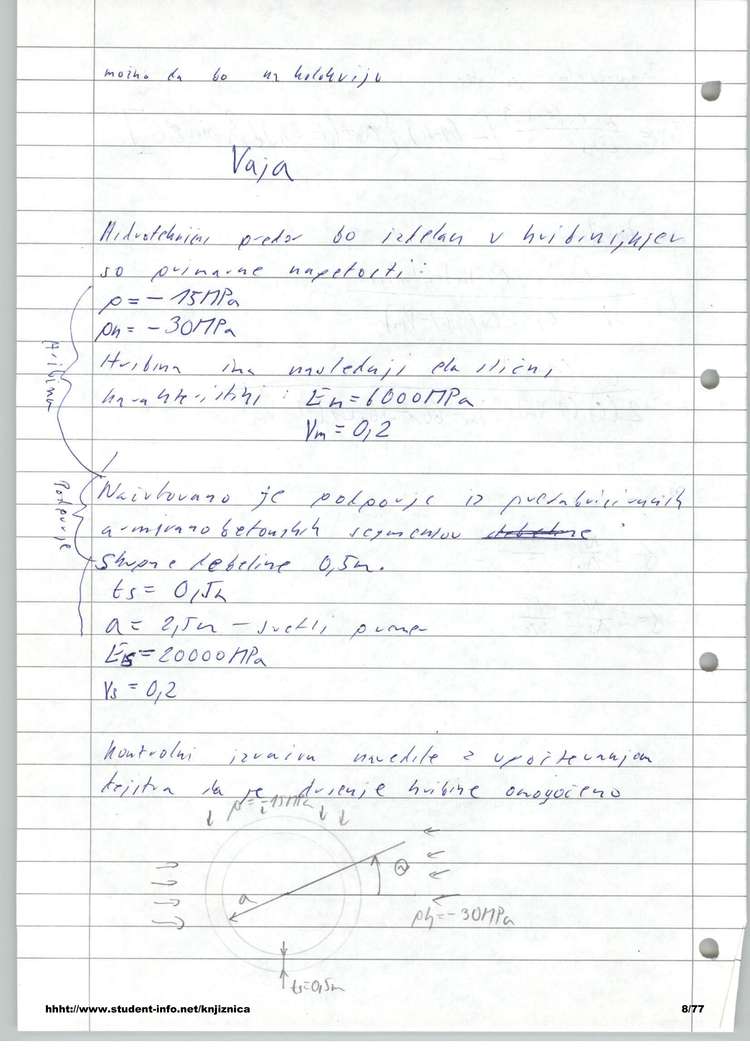 možno da bo na kolokviju
Vaja
Hidrotehnični predor bo izdelan v hribini, kjer
so primarne napetosti:
p = - 15MPa
ph = - 30MPa
Hribina ima naslednji elastični
karakteristiki: Em = 6000MPa
νm = 0,2
Hribina
Načrtovano je podporje iz prefabriciranih
armirano betonskih segmentov
Skupne debeline 0,5m.
ts = 0,5m
a = 2,5m - svetli
Es = 20000MPa
νs = 0,2
Podporje
Kontrolni izračun naredite z upoštevanjem
dejstva da je drsenje hribine omogočeno
p = -15MPa
a
Θ
ph = -30MPa
ts=0,5m
hhht://www.student-info.net/knjiznica
8/77